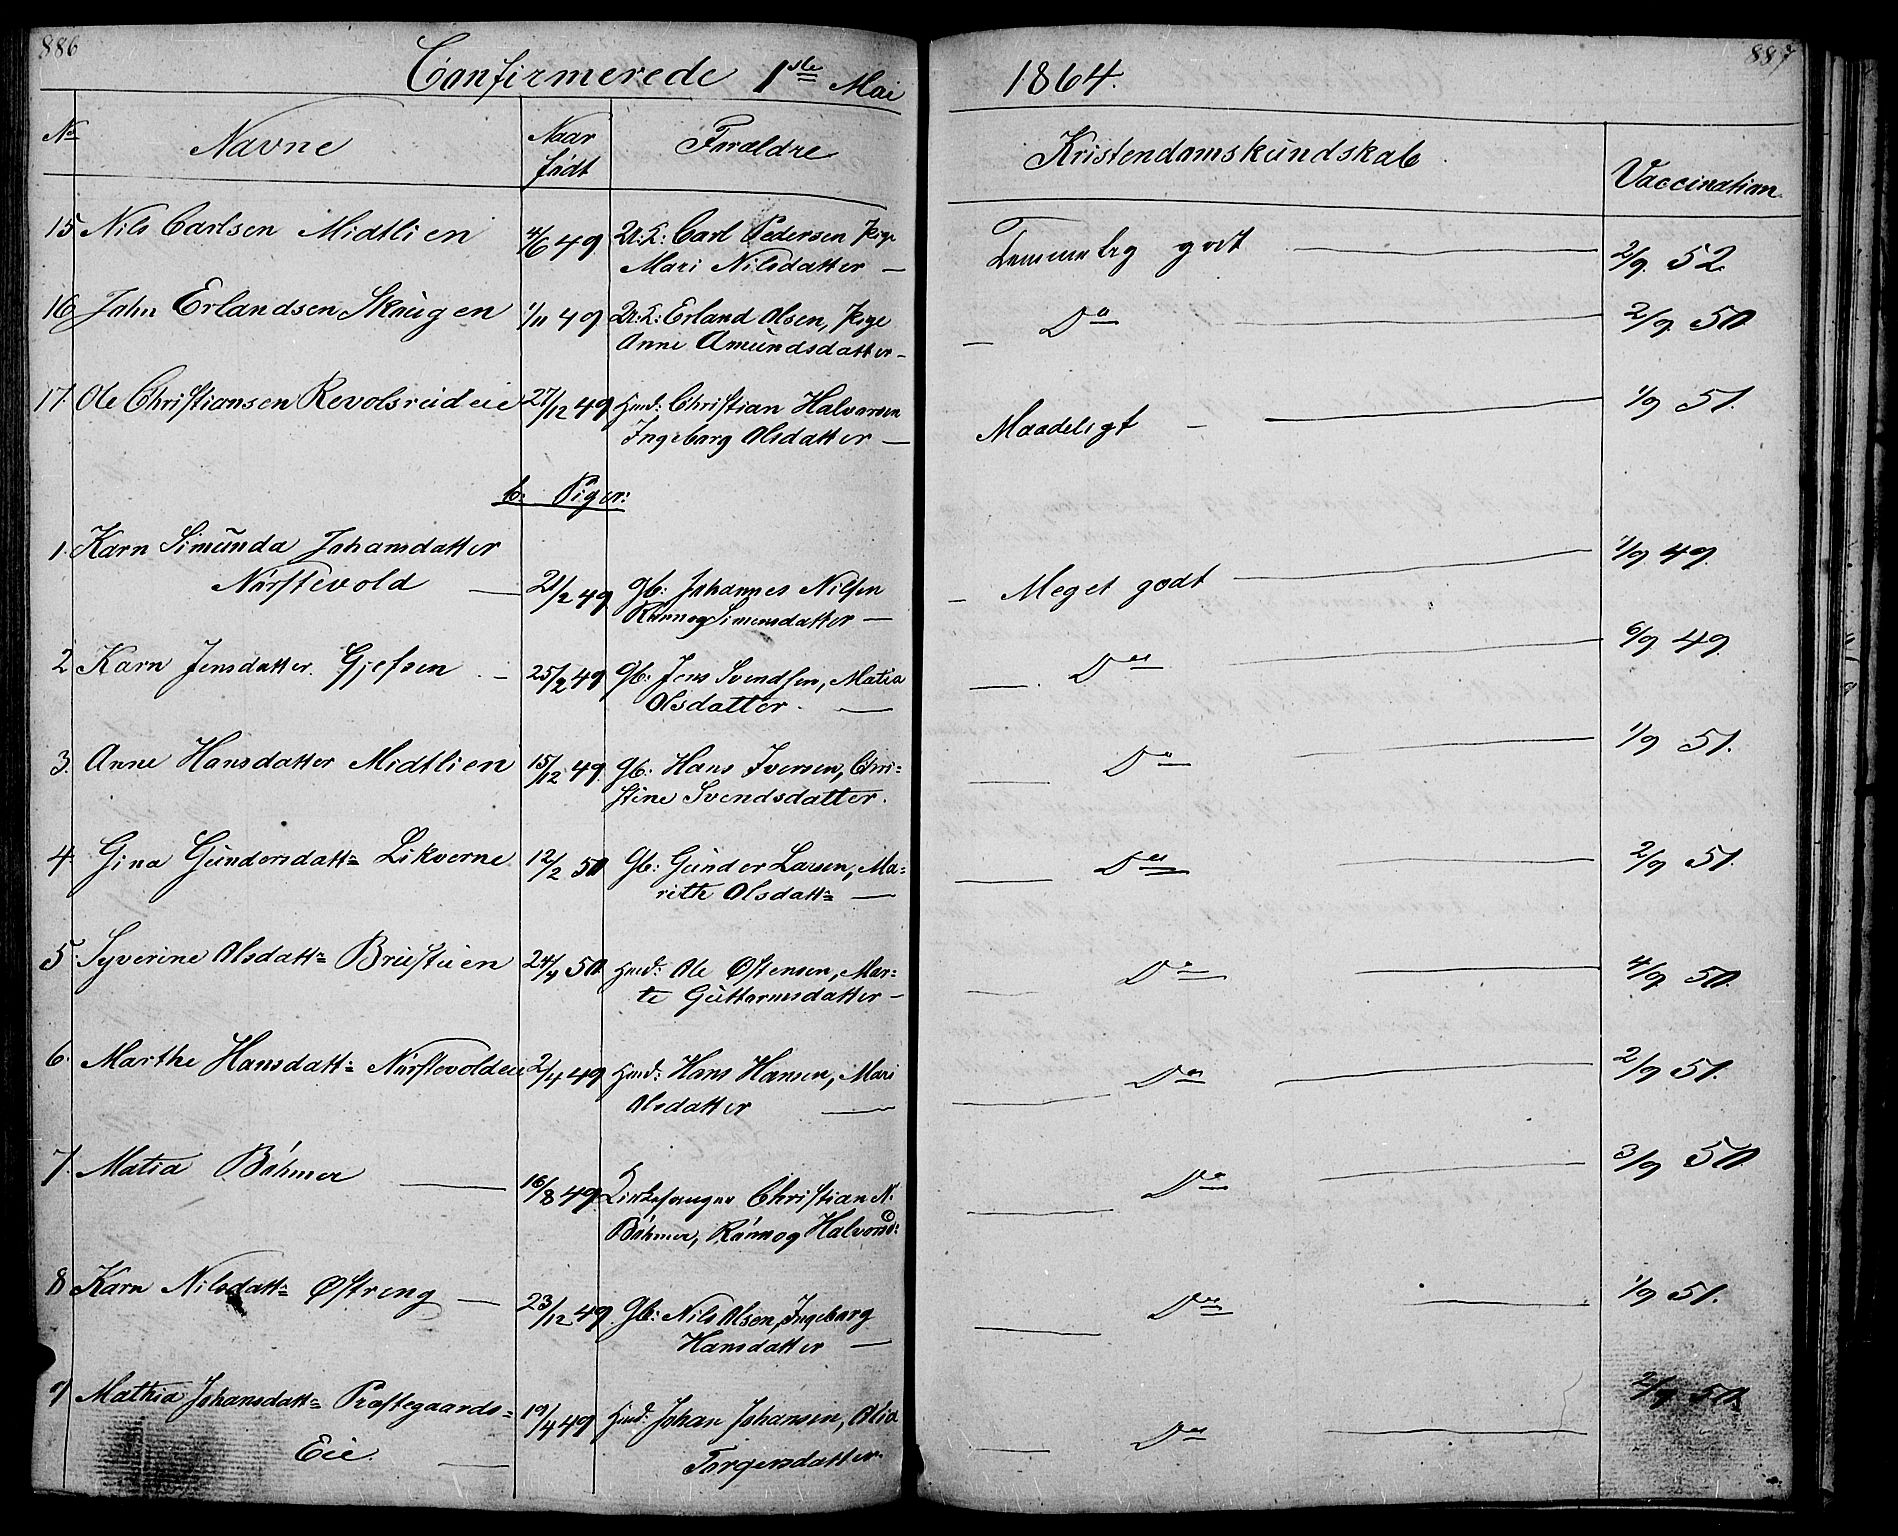 886
887
Confirmerede 1ste Mai 1864.
No Navne Naar født Forældre Kristendomskundskab Vaccination
15 Nils Carlsen Midtlien 4/6 49 U: Æ: Carl Pedersen, Pige Temmelig godt 2/9 52
Mari Nilsdatter —
16 John Erlandsen Skaugen 1/11 49 U: Æ: Erland Olsen, Pige — Do 2/9 50
Anne Amundsdatter —
17 Ole Christiansen Revolsrudeie 27/12 49 Husd: Christian Halvorsen Maadeligt — 1/9 51.
Ingeborg Olsdatter —
b: Piger:
1. Karn Simunda Johansdatter
Nørstevold — 21/2 49 Gb: Johannes Nilsen — Meget godt 1/9 49.
Rønnog Simensdatter —
2 Karn Jensdatter Gjefsen — 25/2 49 Gb: Jens Svendsen, Matia — Do 6/9 49
Olsdatter. —
3. Anne Hansdatter Midtlien 15/12 49 Gb: Hans Iversen, Chri= — Do 1/9 51.
stine Svendsdatter.
4. Gina Gundersdatt= Likverne 12/2 50 Gb: Gunder Larsen, Ma= — Do 2/9 51.
rithe Olsdatt= —
5. Syverine Olsdatt= Brustuen 24/4 50 Husd: Ole Østensen, Mar= — Do 4/9 50.
te Guttormsdatter —
6. Marthe Hansdatt= Nørstevoldeie 2/4 49 Husd: Hans Hansen, Mari — Do 2/9 51.
Olsdatter —
7. Matia Bøhmer — 16/8 49 Kirkesanger Christian N. — Do 3/9 50
Bøhmer, Rønnog Halvorsd:
8 Karn Nilsdatt= Østreng — 23/12 49. Gb: Nils Olsen, Ingeborg — Do 1/9 51.
Hansdatter —
9 Mathia Johansdatt= Præstegaards= 19/4 49 Husd: Johan Johansen, Olia — Do 2/9 50.
Eie. — Torgersdatter.